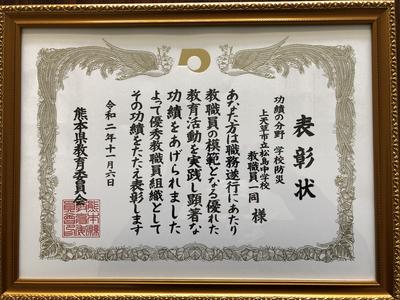 表彰状
功績の分野 学校防災
上天草市立松島中学校
教職員一同 様
あなた方は職務遂行にあたり
教職員の模範となる優れた
教育活動を実践し顕著な
功績をあげられました
よって優秀教職員組織として
その功績をたたえ表彰します
令和二年十一月六日
熊本県教育委員会